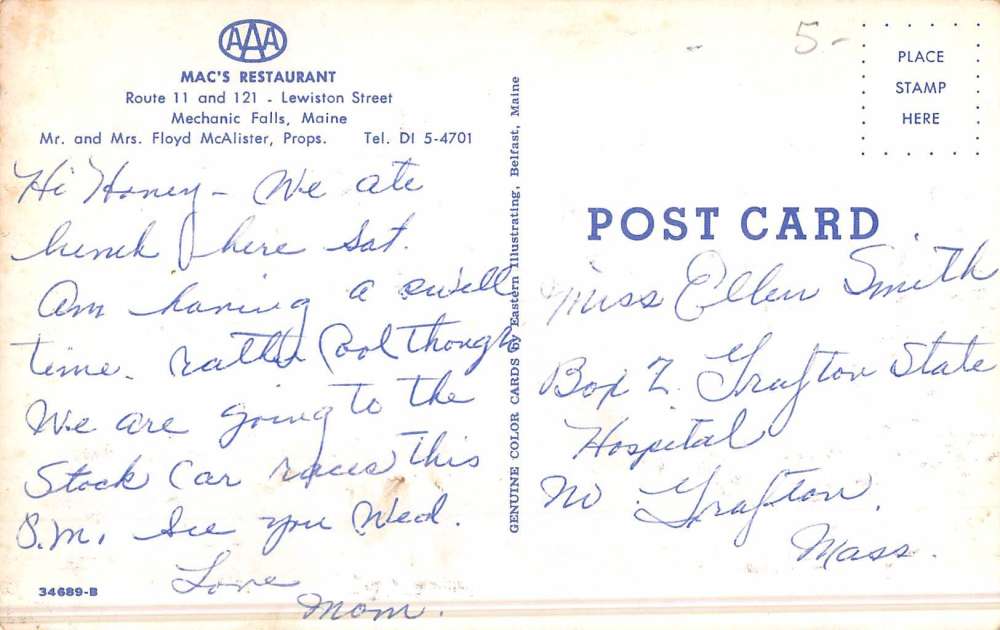 AAA
MAC'S RESTAURANT
Route 11 and 121 - Lewiston Street
Mechanic Falls, Maine
Mr. and Mrs. Floyd McAlister, Props. Tel. DI 5-4701
Hi Honey - We ate
lunch here Sat.
Am having a swell
time. rather cool though
We are going to the
Stock Car races this
P.M. See you Wed.
Love
Mom.
34689-B
GENUINE COLOR CARDS By Eastern Illustrating, Belfast, Maine
5-
PLACE
STAMP
HERE
POST CARD
Miss Ellen Smith
Box Z. Grafton State
Hospital
No. Grafton,
Mass.